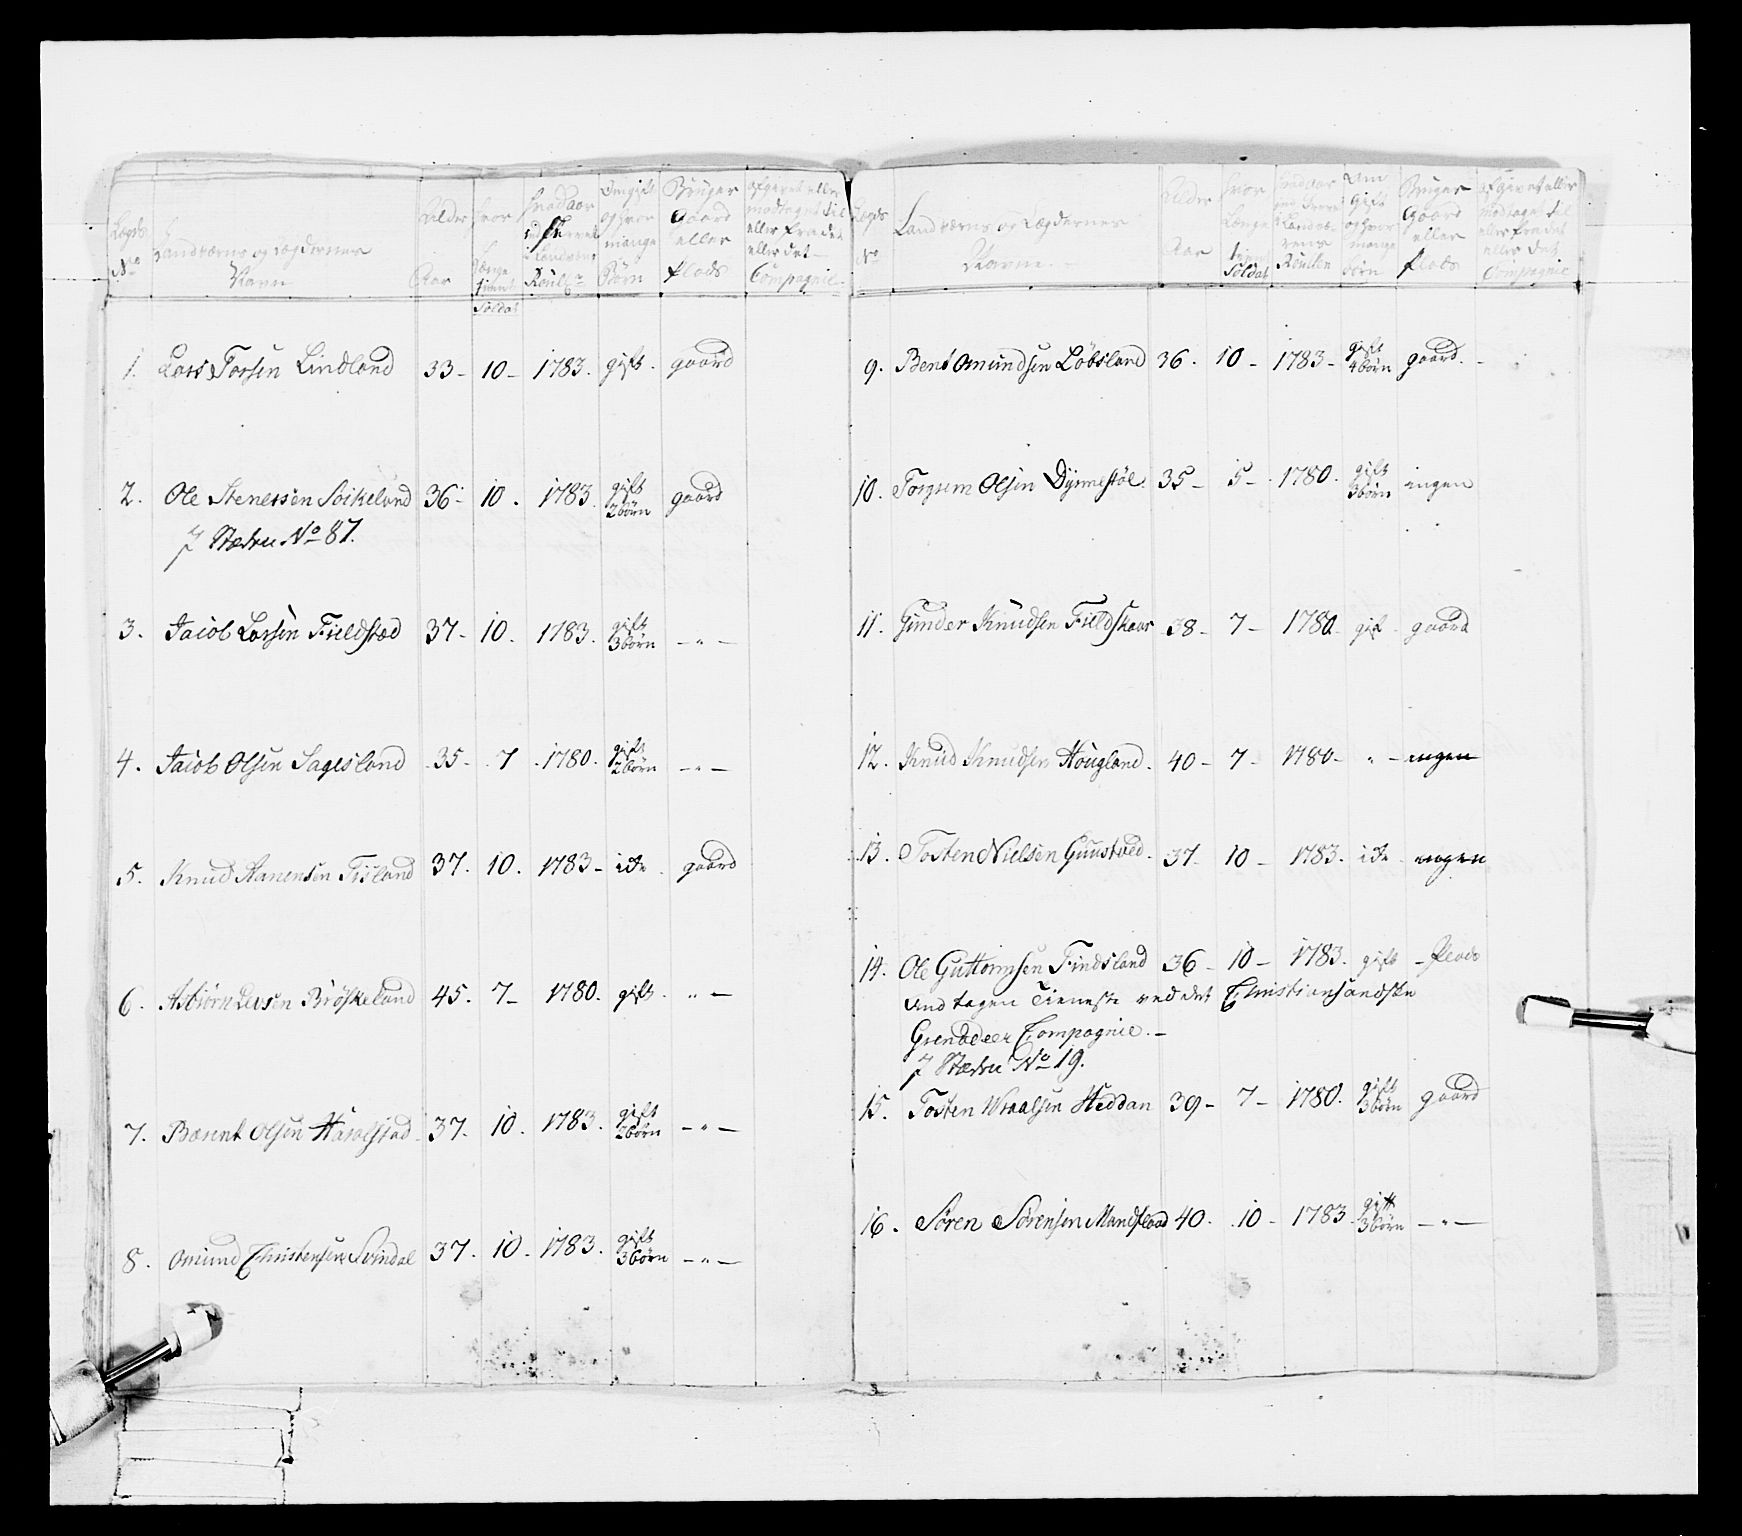 Lægds No | Landværns og Lægdernes Navn | Alder Aar | hvor længe tient Soldat | hvad Aar ind skrevet i Landværns Roull | Om gift og hvor mange Børn | Bruger Gaard eller Plads | afgivet eller modtaget til eller fra det eller det Compagnie
1. Lars Torsen Lindland 33 - 10 - 1783. gift. gaard
2. Ole Stenersen Soikeland 36 - 10. 1783 gift 2 børn gaard
J Stæden No 87.
3. Jacob Larsen Fieldstæd 37 - 10. 1783. gift 3 børn - " -
4. Jacob Olsen Sagesland 35 - 7 1780. gift 2 børn - " -
5. Knud Aanensen Fisland 37. 10. 1783 - icke. gaard
6. Asbiørn Larsen Brøskeland 45. 7 - 1780. gift. " -
7. Bærent Olsen Haralstad 37. 10. 1783. gift 3 børn - " -
8. Omund Christensen Svindal 37. 10. 1783. gift 3 børn - " -
Lægds No | Landværns og Lægdernes Navne. | Alder Aar | hvor længe tient Soldat | hvad Aar ind skrevet i Landværens Roullen | Om Gift og hvor mange børn | Bruger Gaard eller Plads | afgivet eller modtaget til eller fra det eller det Compagnie
9. Bent Omundsen Løbsland 36. 10 - 1783 - gift 4 børn gaard. -
10. Torgrem Olsen Dynnestøl 35 - 5 - 1780. gift 3 børn ingen
11. Gunder Knudsen Fieldskaar 38 - 7 - 1780. gift gaard
12. Knud Knudsen Hougland. 40 - 7 - 1780 - " - ingen
13. Tosten Nielsen Guustved. 37 - 10 - 1783. icke ingen
14. Ole Guttormsen Findsland 36 - 10 - 1783. gift - Plads
And tagen Tieneste ved det Christiansandske
Grenadeer Compagnie. -
J Stæden No 19.
15. Tosten Wraalsen Heddan 39 - 7 - 1780. gift 3 børn gaard
16. Sören Sörensen Mandflaad 40. 10 - 1783. gift 3 børn - " -